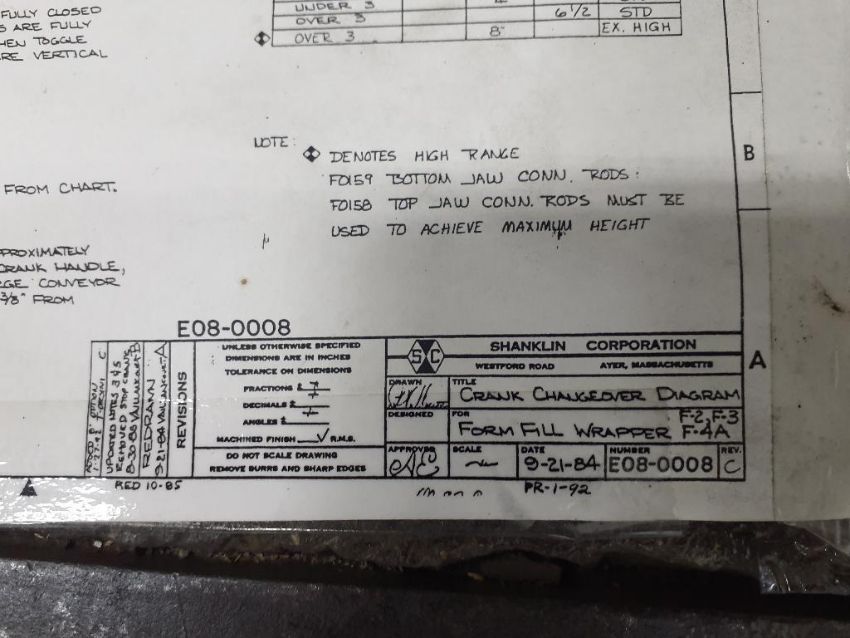 FULLY CLOSED
S ARE FULLY
HEN TOGGLE
RE VERTICAL
UNDER 3
OVER 3 6 1/2 STD
OVER 3 8" EX. HIGH
NOTE:
DENOTES HIGH RANGE
F0159 BOTTOM JAW CONN. RODS:
F0158 TOP JAW CONN. RODS MUST BE
USED TO ACHIEVE MAXIMUM HEIGHT
B
FROM CHART.
PROXIMATELY
CRANK HANDLE,
GE CONVEYOR
3/8" FROM
E08-0008
C
UPDATED NOTES 3 & 5
REMOVED STOP CHART
8-30-85
B
REDRAWN
9-21-84
A
REVISIONS
UNLESS OTHERWISE SPECIFIED
DIMENSIONS ARE IN INCHES
TOLERANCE ON DIMENSIONS
FRACTIONS ±
DECIMALS ±
ANGLES ±
MACHINED FINISH √ R.M.S.
DO NOT SCALE DRAWING
REMOVE BURRS AND SHARP EDGES
SC
SHANKLIN CORPORATION
WESTFORD ROAD AYER, MASSACHUSETTS
DRAWN
TITLE
CRANK CHANGEOVER DIAGRAM
DESIGNED
FOR
FORM FILL WRAPPER F-2, F-3
F-4A
APPROVED
SCALE
DATE
9-21-84
NUMBER
E08-0008
REV.
C
A
RED 10-85
PR-1-92